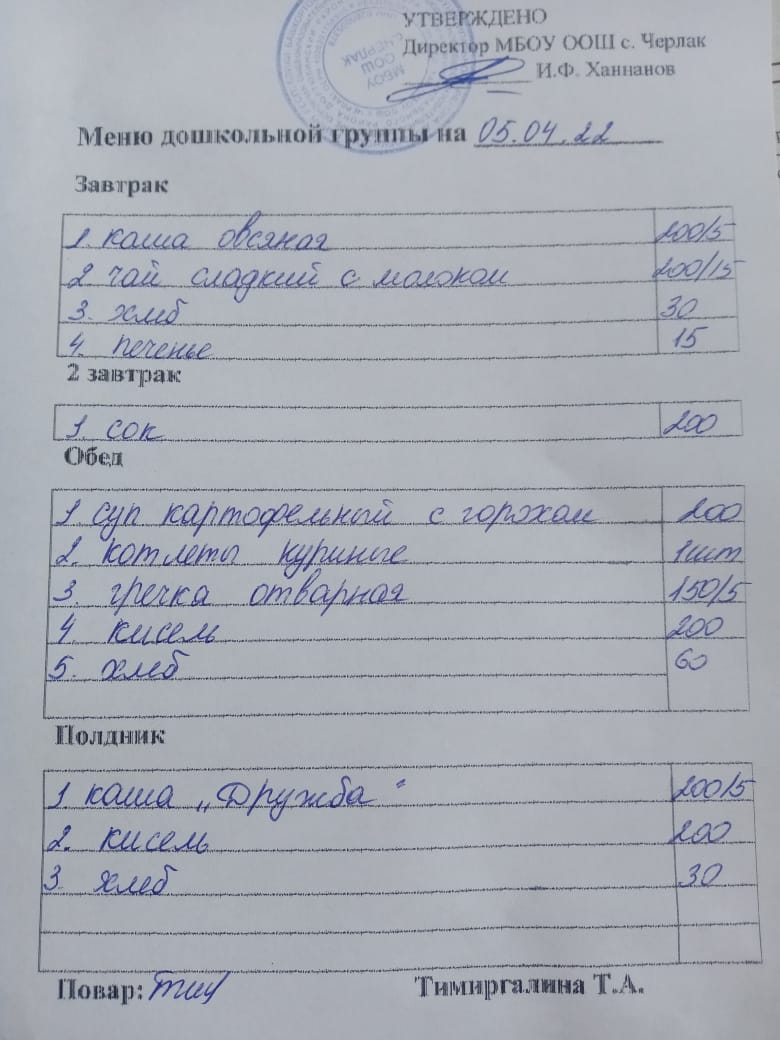 УТВЕРЖДЕНО
Директор МБОУ ООШ с. Черлак
И.Ф. Ханнанов
МБОУ
ООШ
с. ЧЕРЛАК
Меню дошкольной группы на 05.04.22
Завтрак
1. каша овсяная 200/5
2 чай сладкий с молоком 200/15
3. хлеб 30
4. печенье 15
2 завтрак
1. сок 200
Обед
1. суп картофельный с горохом 200
2. котлеты куриные 1шт
3. гречка отварная 150/5
4. кисель 200
5. хлеб 60
Полдник
1 каша „Дружба" 200/5
2. кисель 200
3. хлеб 30
Повар: Тимиргалина Т.А.